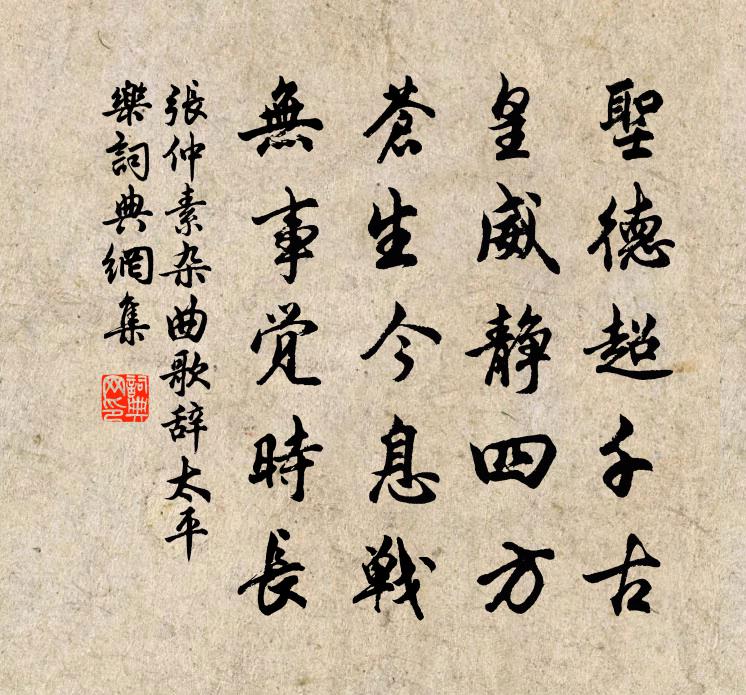 聖德超千古
皇威靜四方
蒼生今息戦
無事覚時長
張仲素杂曲歌辞太平
樂詞典網集
詞典网印